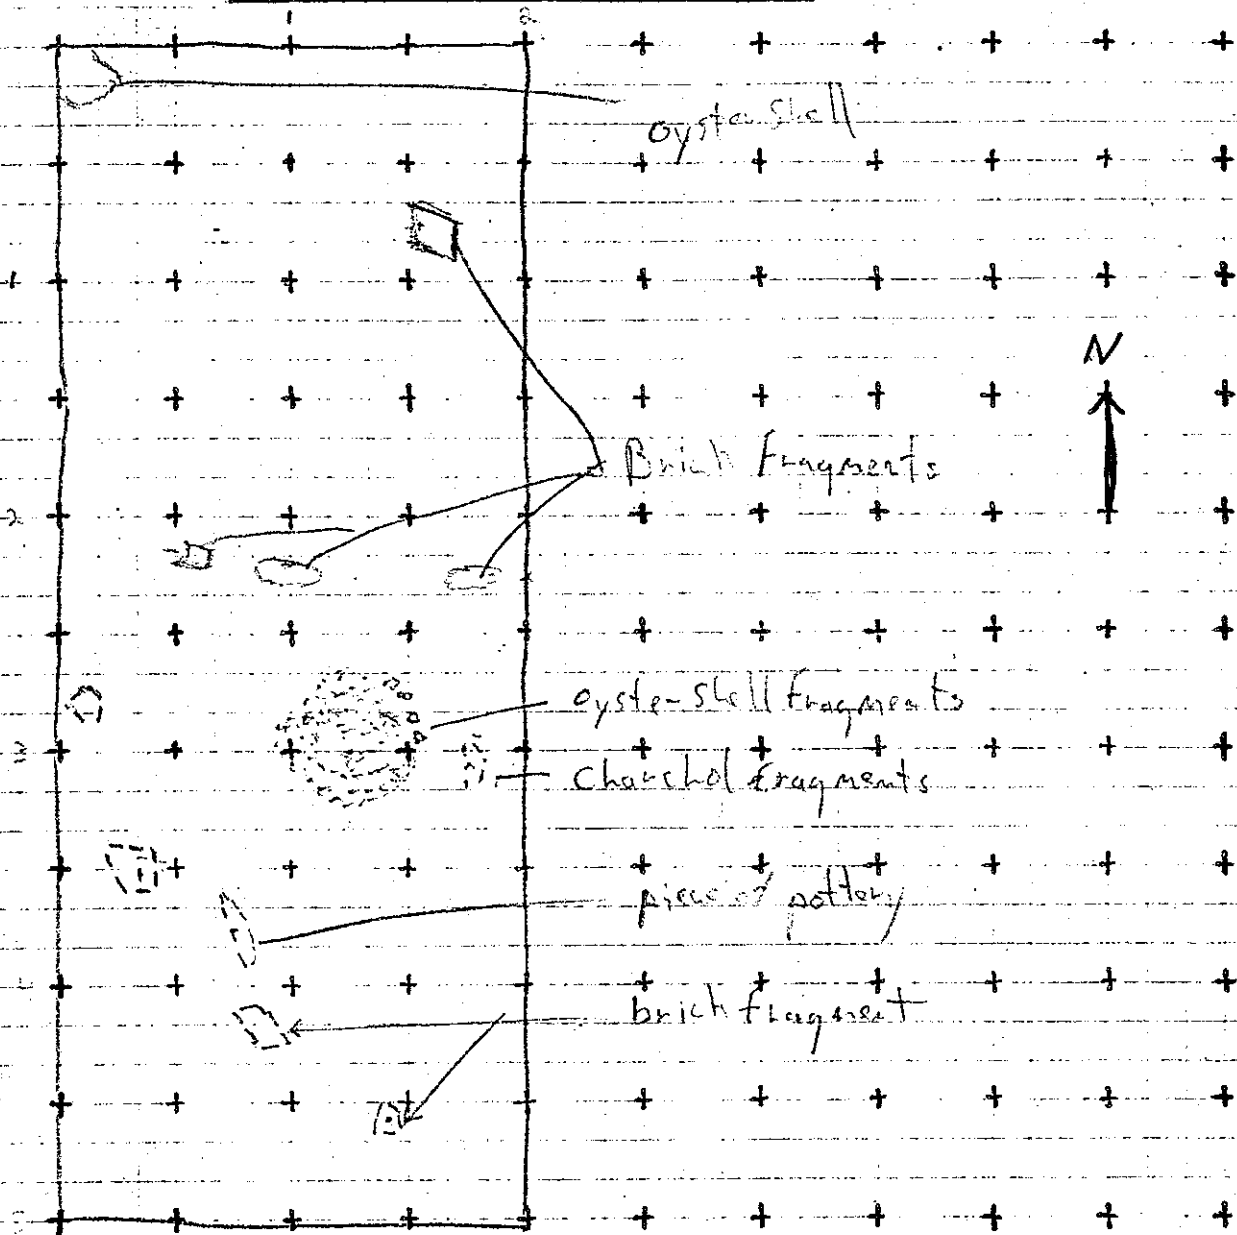 1 2
oyster Shell
1
N
Brich Fragments
2
oyster Shell fragments
3
Charchol fragments
piece of pottery
4
brich fragment